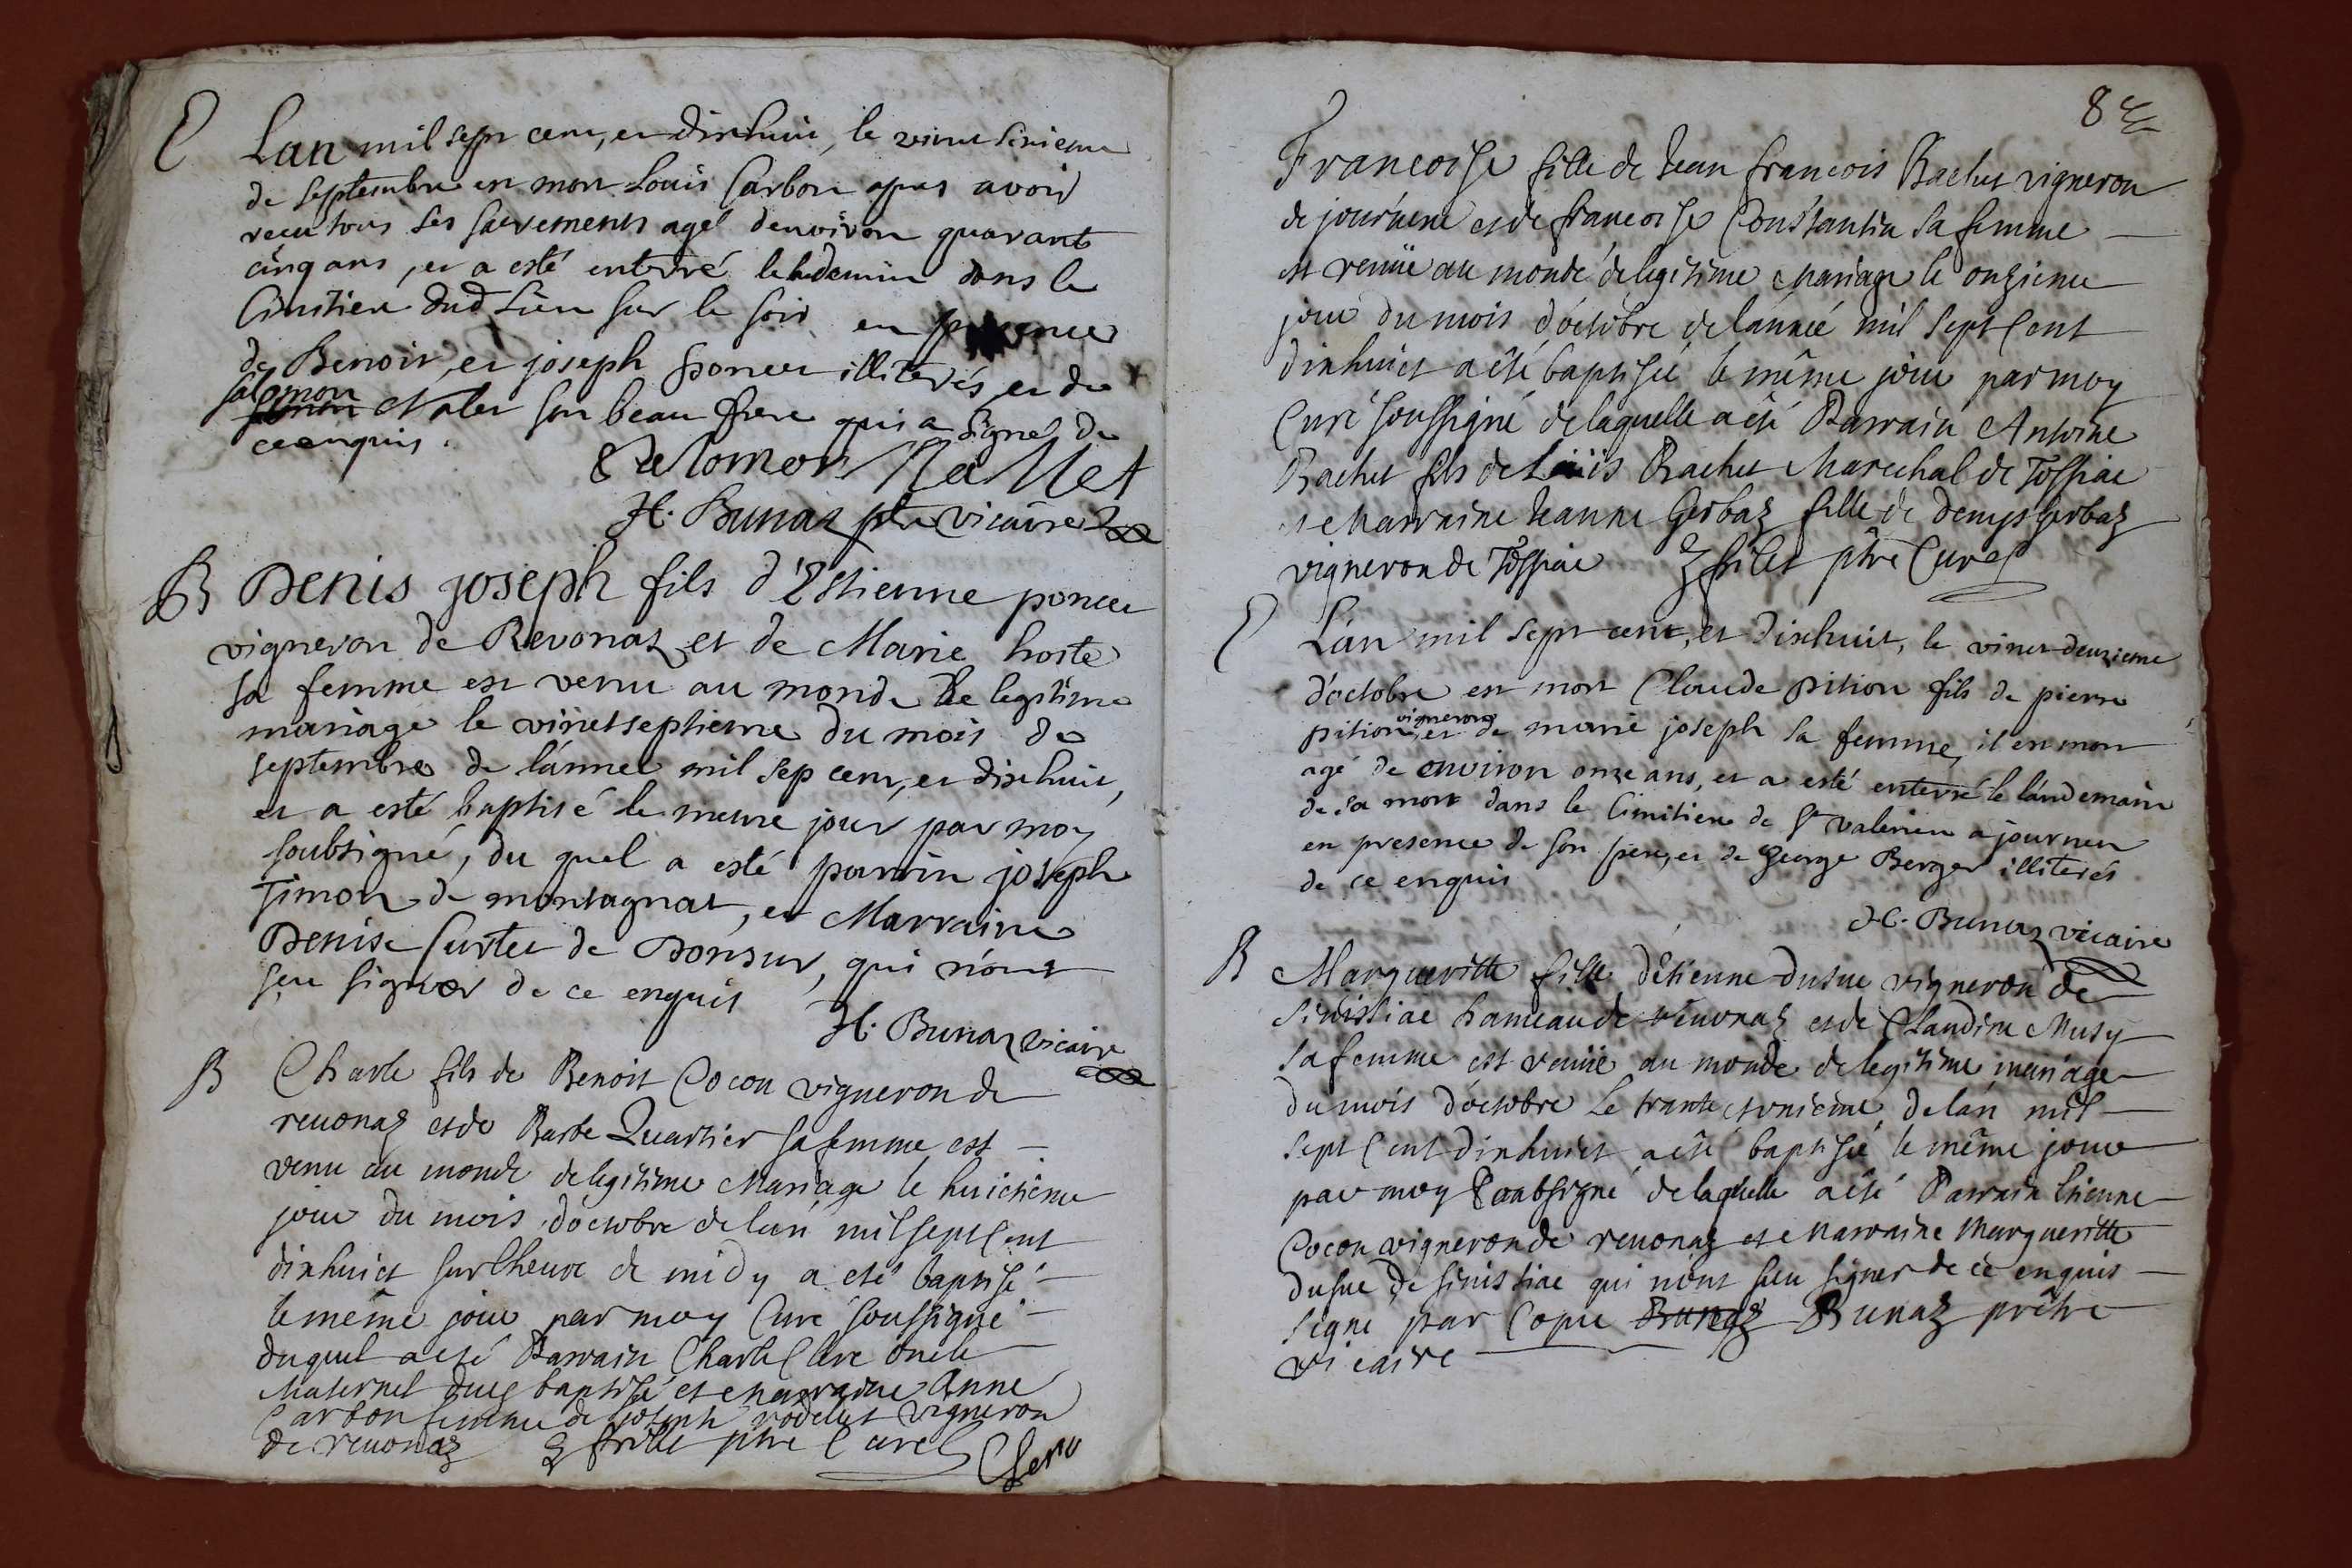 E Lan mil sept cent, et dixhuit, le vint sixieme
de septembre est mort Louis Carbon apres avoir
recu tous ses sacrements agé denviron quarant
cinq ans, et a esté enterré le lendemin dans le
Cimitiere dud Lieu sur le soir en presence
de Benoit, et joseph poncet illiterés et de
salomon
Nalet son beau frere qui a signé de
ce enquis.
Salomon Nallet
H. Bunaz ptre vicaire
B Denis joseph fils d'Estienne poncet
vigneron de Revonaz et de Marie hoste
sa femme est venu au monde de legitime
mariage le vintseptieme du mois de
septembre de l'annee mil sep cent, et dixhuit,
et a esté baptisé le meme jour par moy
soubsigné, du quel a esté parrin joseph
Timon de montagnat, et Marraine
Denise Curtet de Donsur, qui n'ont
seu signer de ce enquis
H. Bunaz vicaire
B Charle fils de Benoit Cocon vigneron de
reuonaz et de Barbe Quartier sa femme est
venu au monde de legitime Mariage le huictieme
jour du mois d'octobre de lan mil sept Cent
dixhuict sur lheure de midy a eté baptisé
le même jour par moy Curé soussigné
duquel a eté Parrain Charle Clerc oncle
Maternel dud baptisé et Marraine Anne
Carbon femme de joseph rodelet vigneron
de reuonaz ptre Curé
Clerc
8
Francoise fille de Jean francois Bachet vigneron
de journent et de francoise Constantin sa femme
est venüe au monde de legitime Mariage le onzieme
jour du mois d'octobre de lannée mil sept Cent
dixhuict a été baptisée le même jour par moy
Curé soussigné de laquelle a été Parrain Antoine
Bachet fils de Loüis Bachet Marechal de Tossiac
et Marraine Jeanne Gerbaz fille de denys Gerbaz
vigneron de Tossiac ptre Curé
E L'an mil sept cent, et dixhuit, le vint deuxieme
d'octobre est mort Claude pition fils de pierre
vigneron
pition et de marie joseph sa femme, il est mort
agé de environ onze ans, et a esté enterré le landemain
de sa mort dans le Cimitiere de St valerien a journen
en presence de son pere, et de George Berger illiterés
de ce enquis
H. Bunaz vicaire
B Margueritte fille d'étienne dusue vigneron de
sinissiac hameau de reuonaz et de Claudine Musy
sa femme est venüe au monde de legitime mariage
du mois d'octobre Le trante et unieme de lan mil
sept Cent dixhuict a été baptisée le même jour
par moy soubsigné de laquelle a été Parrain Etienne
Cocon vigneron de reuonaz et Marraine Margueritte
dusue de sinissiac qui n'ont seu signer de ce enquis
signé par Copie Bunaz Bunaz prêtre
vicaire